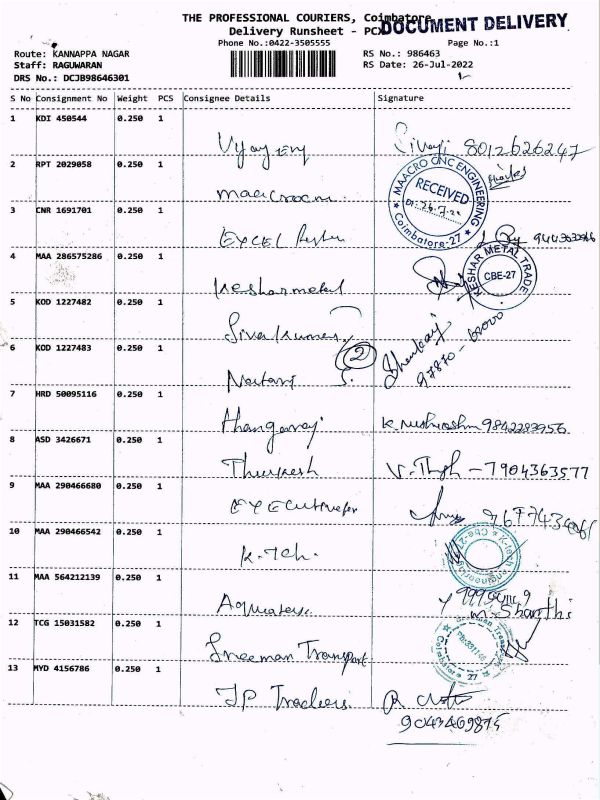 THE PROFESSIONAL COURIERS, Coimbatore
DOCUMENT DELIVERY
Delivery Runsheet - PCX
Phone No.:0422-3505555
Page No.:1
Route: KANNAPPA NAGAR
RS No.: 986463
Staff: RAGUWARAN
RS Date: 26-Jul-2022
DRS No.: DCJB98646301
S No Consignment No Weight PCS Consignee Details Signature
1 KDI 450544 0.250 1
Vijay Eng 8012626247
2 RPT 2029058 0.250 1
MAACRO CNC ENGINEERING
RECEIVED
Coimbatore-27
3 CNR 1691701 0.250 1
EXCEL
4 MAA 286575286 0.250 1
Keshar metal
KESHAR METAL TRADE
CBE-27
5 KOD 1227482 0.250 1
Sivakumar
6 KOD 1227483 0.250 1
2
97870-60000
7 HRD 50095116 0.250 1
Thangaraj
8 ASD 3426671 0.250 1
V. - 7904363577
9 MAA 290466680 0.250 1
10 MAA 290466542 0.250 1
K. Tch.
11 MAA 564212139 0.250 1
M. Shanthi
12 TCG 15031582 0.250 1
Sreeman Transport
Coimbatore 27
13 MYD 4156786 0.250 1
JP Trackers.
9043469875